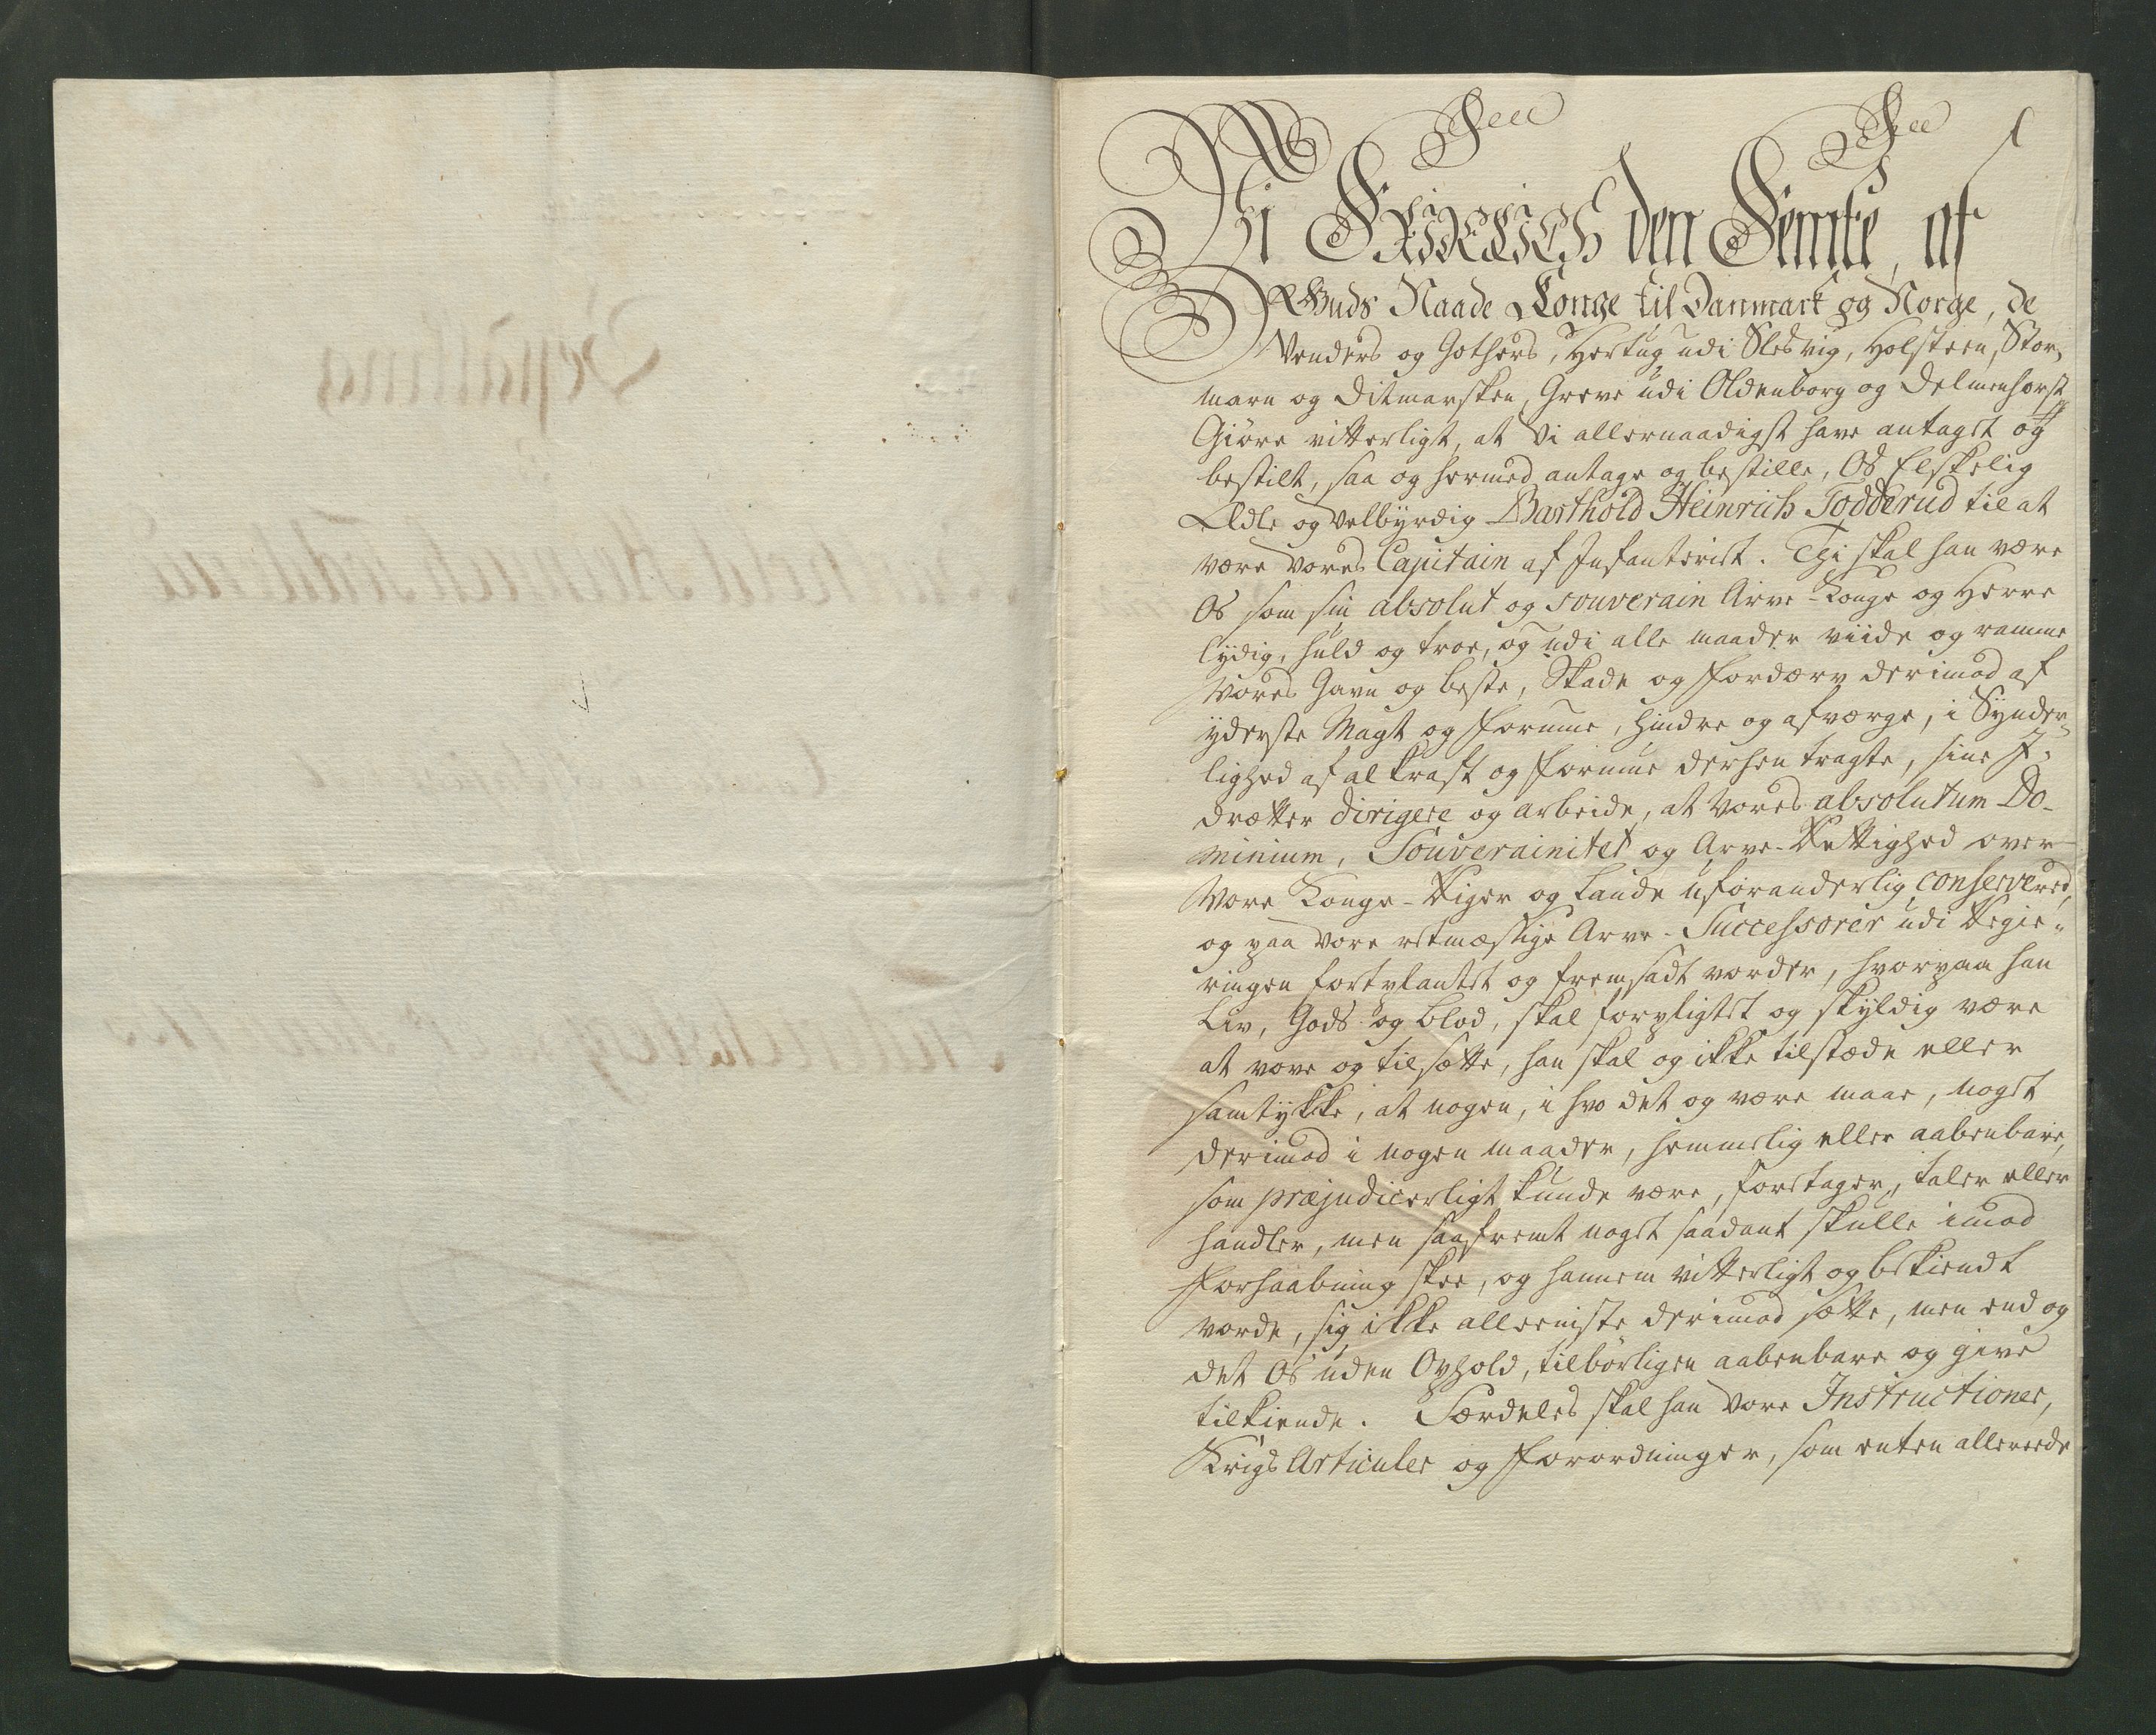 Vi FRIDERICH den Femte, af
Guds Naade Konge til Danmark og Norge, de
Venders og Gothers, Hertug udi Slesvig, Holsteen, Stor,
marn og Ditmarsken, Greve udi Oldenborg og Delmenhorst,
Giöre vitterligt, at Vi allernaadigst have antaget og
bestilt, saa og hermed antage og bestille, Os Elskelig
Ædle og Velbÿrdig Barthold Heinrich Todderud til at
være Vores Capitain af Infanteriet. Thi skal han være
Os som sin absolut og souverain Arve-Konge og Herre
lÿdig, huld og troe, og udi alle maader viide og ramme
Vores Gavn og beste, Skade og Fordærv derimod af
ÿderste Magt og Formue, hindre og afværge, i Sÿnder-
lighed af al Kraft og Formue derhen tragte, sine I-
drætter dirigere og arbeide, at Vores absolutum Do-
minium, Souverainitet og Arve-Rettighed over
Vore Konge-Riger og Lande uforanderlig conserveret,
og paa Vore retmæssige Arve-Successorer udi Regie-
ringen fortplantet og fremsadt vorder, hvorpaa han
Liv, Gods og Blod, skal forpligtet og skÿldig være
at vove og tilsætte, han skal og ikke tilstæde eller
samtÿkke, at nogen, i hvo det og være maae, noget
derimod i nogen maader, hemmelig eller aabenbare,
som præjudicerligt kunde være, foretager, taler eller
handler, men saafremt noget saadant skulle imod
Forhaabning skee, og hannem vitterligt og bekiendt
vorde, sig ikke alleeniste derimod sætte, men end og
det Os uden Ophold, tilbörligen aabenbare og give
tilkiende. Særdeles skal han Vore Instructioner,
Krigs Articuler og Forordninger, som enten allereede